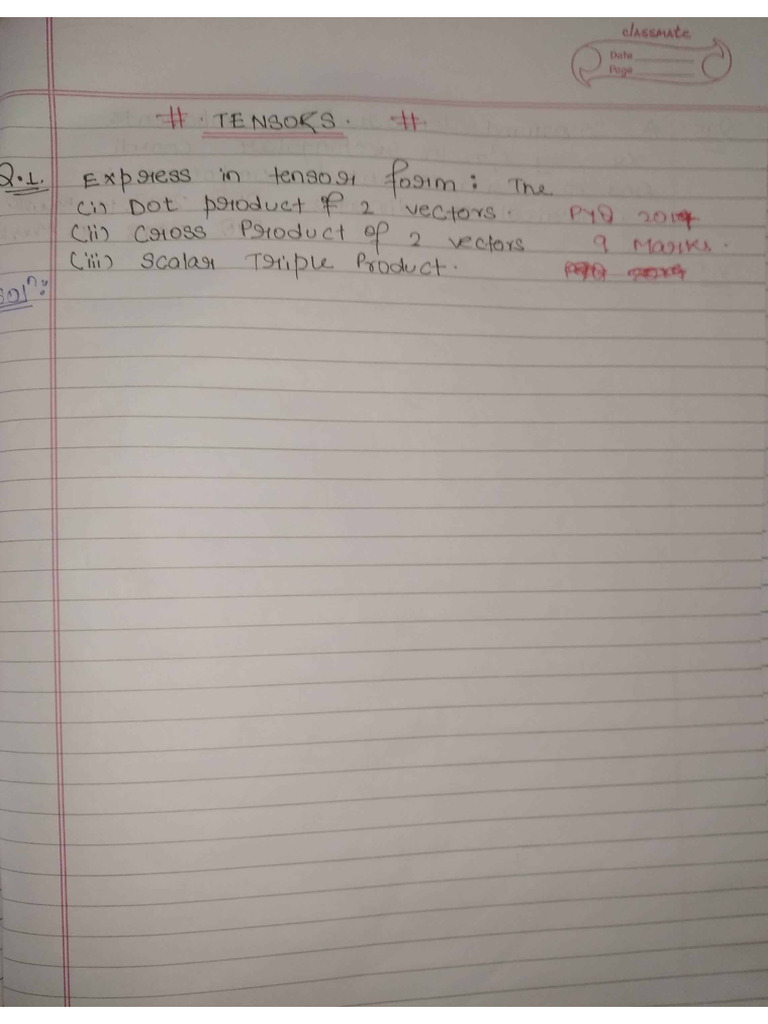 classmate
Date
Page
# TENSORS. #
Q.1. Express in tensor form: The
(i) Dot product of 2 vectors. PYQ 2017
(ii) Cross Product of 2 vectors 9 Marks.
(iii) Scalar Triple Product.
Solⁿ: